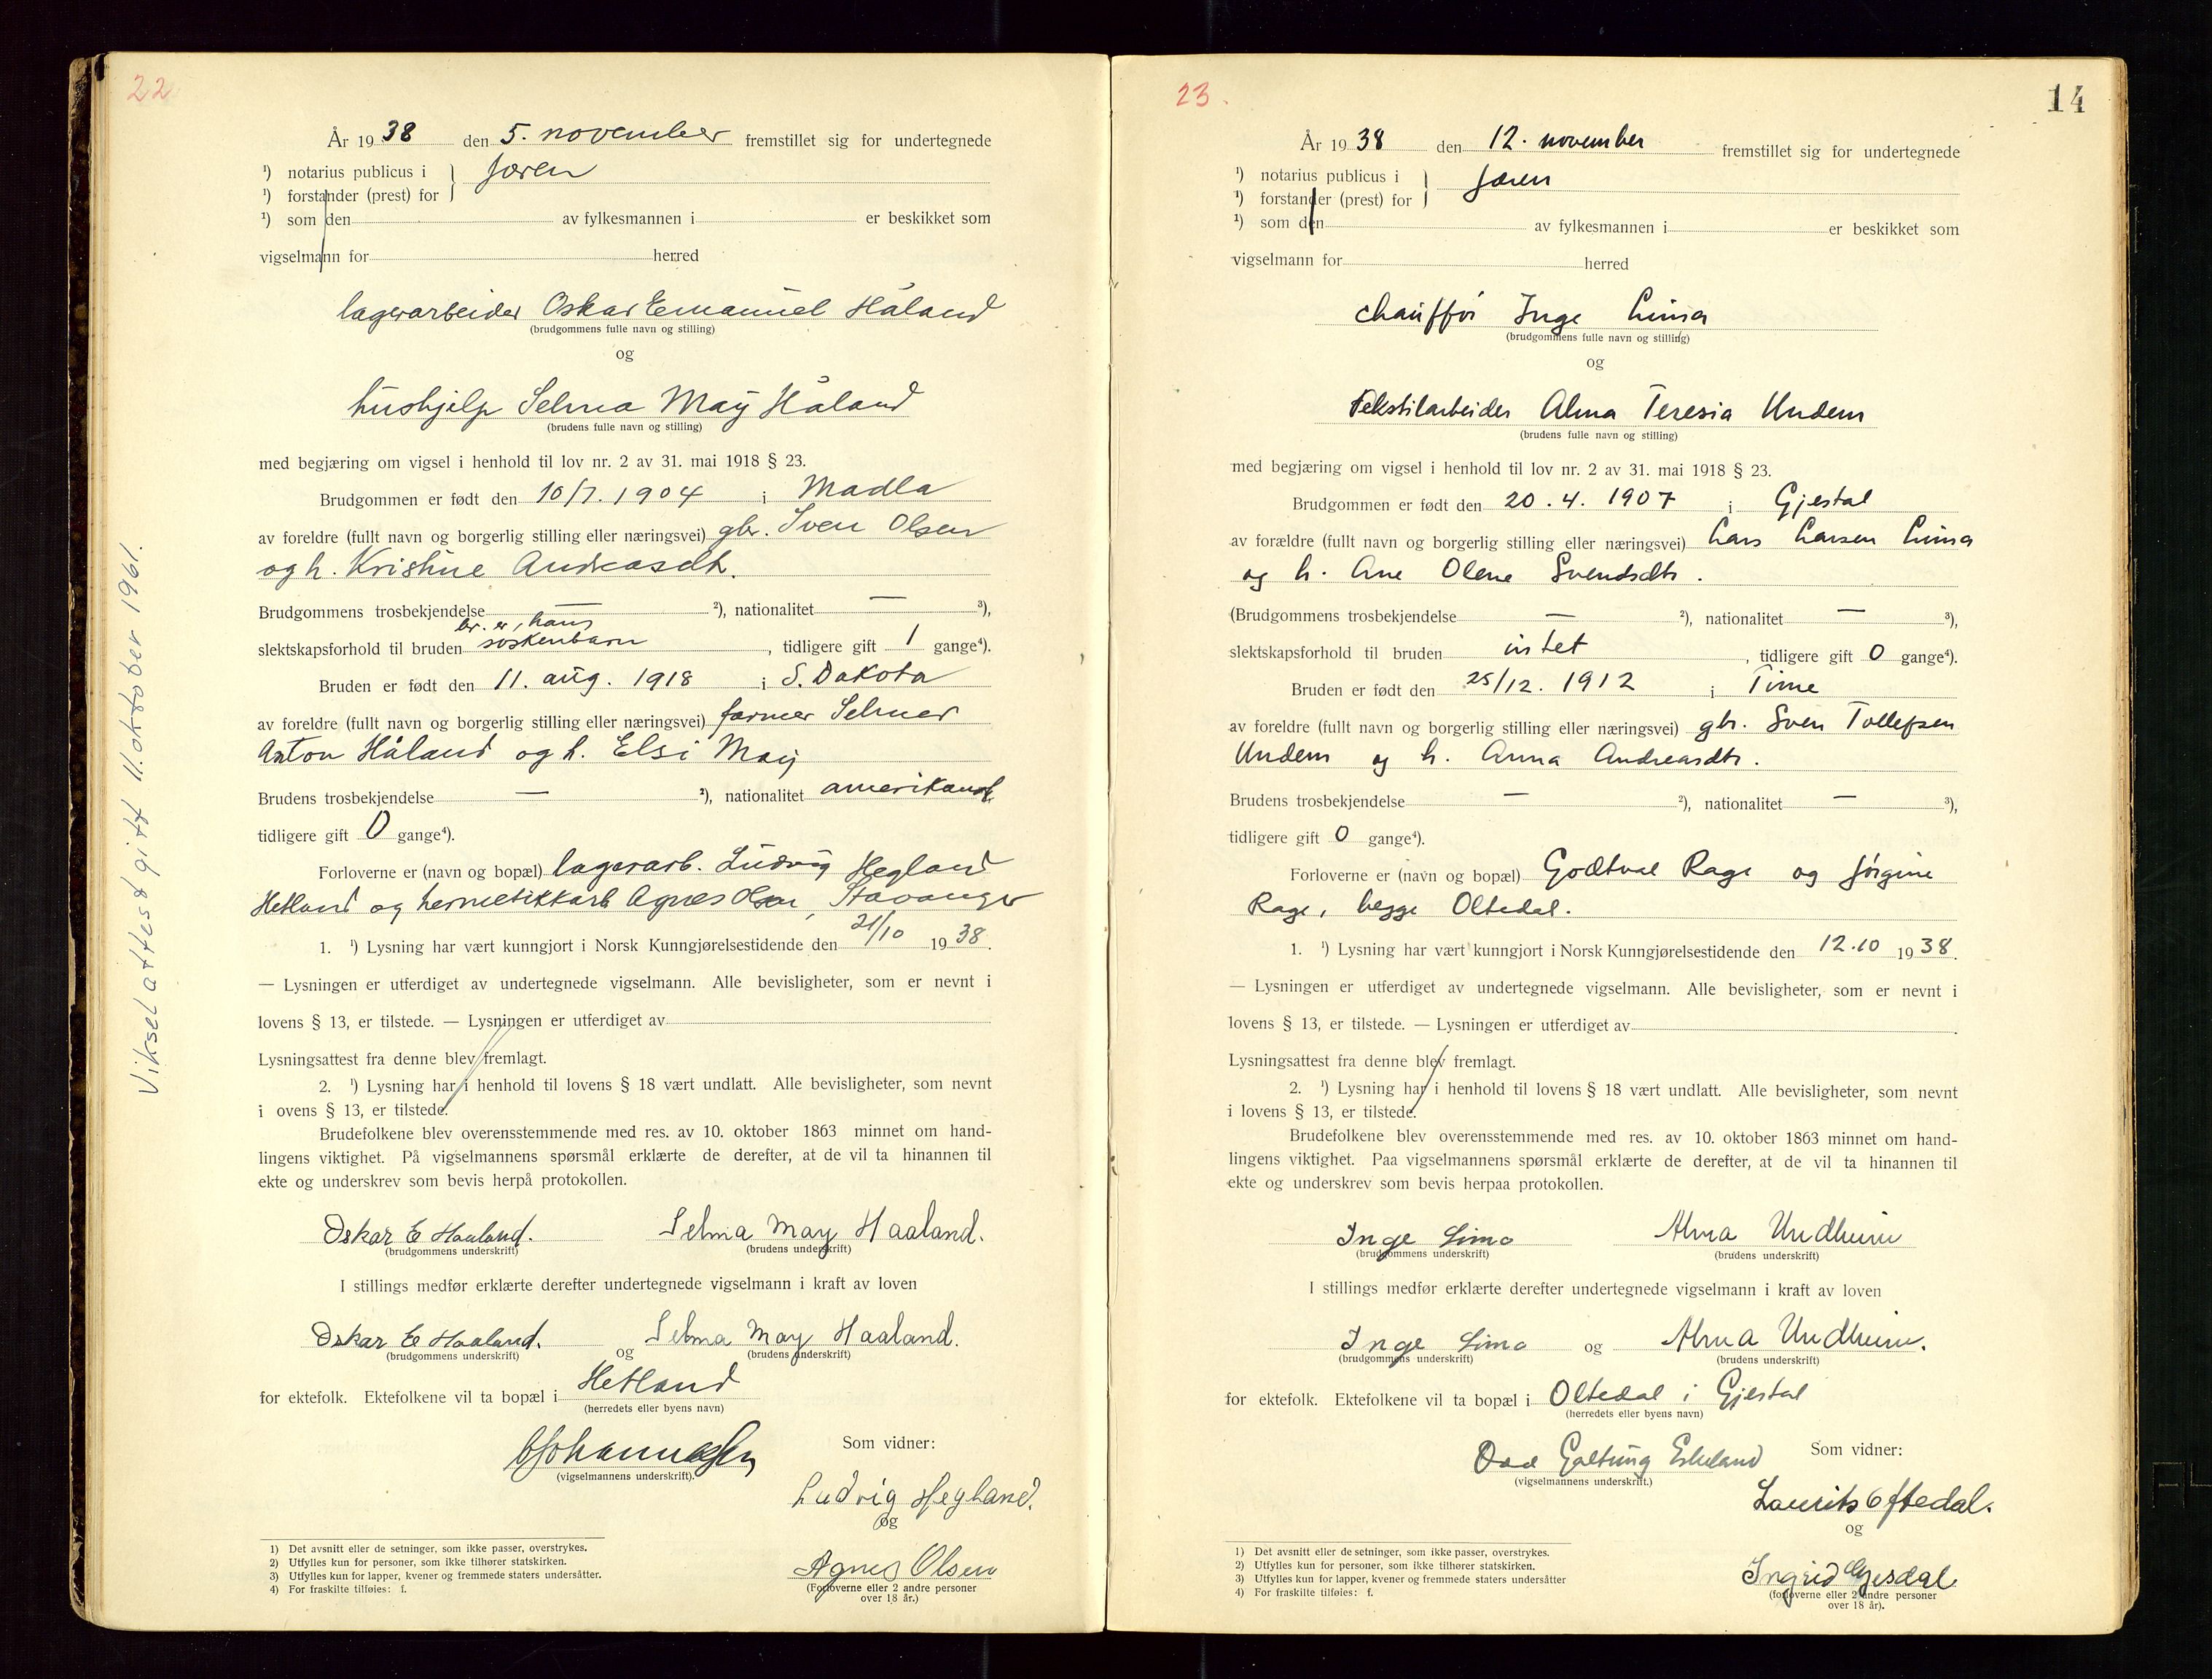 22
År 1938 den 5. november fremstillet sig for undertegnede
¹) notarius publicus i } Jæren
¹) forstander (prest) for
¹) som den av fylkesmannen i er beskikket som
vigselmann for herred
lagerarbeider Oskar Emanuel Håland
(brudgommens fulle navn og stilling)
og
hushjelp Selma May Håland
(brudens fulle navn og stilling)
med begjæring om vigsel i henhold til lov nr. 2 av 31. mai 1918 § 23.
Brudgommen er født den 10/7. 1904 i Madla
av foreldre (fullt navn og borgerlig stilling eller næringsvei) gbr. Sven Olsen
og h. Kristine Andreasdt.
Brudgommens trosbekjendelse — ²), nationalitet — ³),
br. er hans
slektskapsforhold til bruden søskenbarn, tidligere gift 1 gange⁴).
Bruden er født den 11. aug. 1918 i S. Dakota
av foreldre (fullt navn og borgerlig stilling eller næringsvei) farmer Selmer
Anton Håland og h. Elsi May
Brudens trosbekjendelse — ²), nationalitet amerikansk
tidligere gift 0 gange⁴).
Forloverne er (navn og bopæl) lagerarb. Ludvig Hegland
Hetland og hermetikkarb Agnes Olsen, Stavanger
1. ¹) Lysning har vært kunngjort i Norsk Kunngjørelsestidende den 21/10 1938.
— Lysningen er utferdiget av undertegnede vigselmann. Alle bevisligheter, som er nevnt i
lovens § 13, er tilstede. — Lysningen er utferdiget av
Lysningsattest fra denne blev fremlagt.
2. ¹) Lysning har i henhold til lovens § 18 vært undlatt. Alle bevisligheter, som nevnt
i ovens § 13, er tilstede.
Brudefolkene blev overensstemmende med res. av 10. oktober 1863 minnet om hand-
lingens viktighet. På vigselmannens spørsmål erklærte de derefter, at de vil ta hinannen til
ekte og underskrev som bevis herpå protokollen.
Oskar E Haaland. Selma May Haaland.
(brudgommens underskrift) (brudens underskrift)
I stillings medfør erklærte derefter undertegnede vigselmann i kraft av loven
Oskar E Haaland. og Selma May Haaland.
(brudgommens underskrift) (brudens underskrift)
for ektefolk. Ektefolkene vil ta bopæl i Hetland
(herredets eller byens navn)
Som vidner:
(vigselmannens underskrift).
Ludvig Hegland.
og
Agnes Olsen
(Forloverne eller 2 andre personer
over 18 år.)
1) Det avsnitt eller de setninger, som ikke passer, overstrykes.
2) Utfylles kun for personer, som ikke tilhører statskirken.
3) Utfylles kun for lapper, kvener og fremmede staters undersåtter.
4) For fraskilte tilføies: f.
Viksel attest gitt 11. oktober 1961.
23.
14
År 1938 den 12. november fremstillet sig for undertegnede
¹) notarius publicus i } Jæren
¹) forstander (prest) for
¹) som den av fylkesmannen i er beskikket som
vigselmann for herred
chauffør Inge Lima
(brudgommens fulle navn og stilling)
og
Tekstilarbeider Alma Teresia Undem
(brudens fulle navn og stilling)
med begjæring om vigsel i henhold til lov nr. 2 av 31. mai 1918 § 23.
Brudgommen er født den 20.4.1907 i Gjestal
av forældre (fullt navn og borgerlig stilling eller næringsvei) Lars Larsen Lima
og h. Ane Olene Svendsdtr.
(Brudgommens trosbekjendelse — ²), nationalitet — ³),
slektskapsforhold til bruden intet, tidligere gift 0 gange⁴).
Bruden er født den 25/12. 1912 i Time
av foreldre (fullt navn og borgerlig stilling eller næringsvei) gbr. Sven Tollefsen
Undem og h. Anna Andreasdtr.
Brudens trosbekjendelse — ²), nationalitet — ³),
tidligere gift 0 gange⁴).
Forloverne er (navn og bopæl) Godtval Rage og Jørgine
Rage, begge Oltedal.
1. ¹) Lysning har vært kunngjort i Norsk Kunngjørelsestidende den 12.10 1938.
— Lysningen er utferdiget av undertegnede vigselmann. Alle bevisligheter, som er nevnt i
lovens § 13, er tilstede. — Lysningen er utferdiget av .
Lysningsattest fra denne blev fremlagt.
2. ¹) Lysning har i henhold til lovens § 18 vært undlatt. Alle bevisligheter, som nevnt
i lovens § 13, er tilstede.
Brudefolkene blev overensstemmende med res. av 10. oktober 1863 minnet om hand-
lingens viktighet. Paa vigselmannens spørsmål erklærte de derefter, at de vil ta hinannen til
ekte og underskrev som bevis herpaa protokollen.
Inge Lima Alma Undheim
(brudgommens underskrift) (brudens underskrift)
I stillings medfør erklærte derefter undertegnede vigselmann i kraft av loven
Inge Lima og Alma Undheim.
(brudgommens underskrift) (brudens underskrift)
for ektefolk. Ektefolkene vil ta bopæl i Oltedal i Gjestal
(herredets eller byens navn)
Odd Galtung Eskeland Som vidner:
(vigselmannens underskrift.)
Laurits Oftedal.
og
Ingrid Gjesdal
(forloverne eller 2 andre personer
over 18 år).
1) Det avsnitt eller de setninger, som ikke passer, overstrykes.
2) Utfylles kun for personer, som ikke tilhører statskirken.
3) Utfylles kun for lapper, kvener og fremmede staters undersåtter
4) For fraskilte tilføies: f.